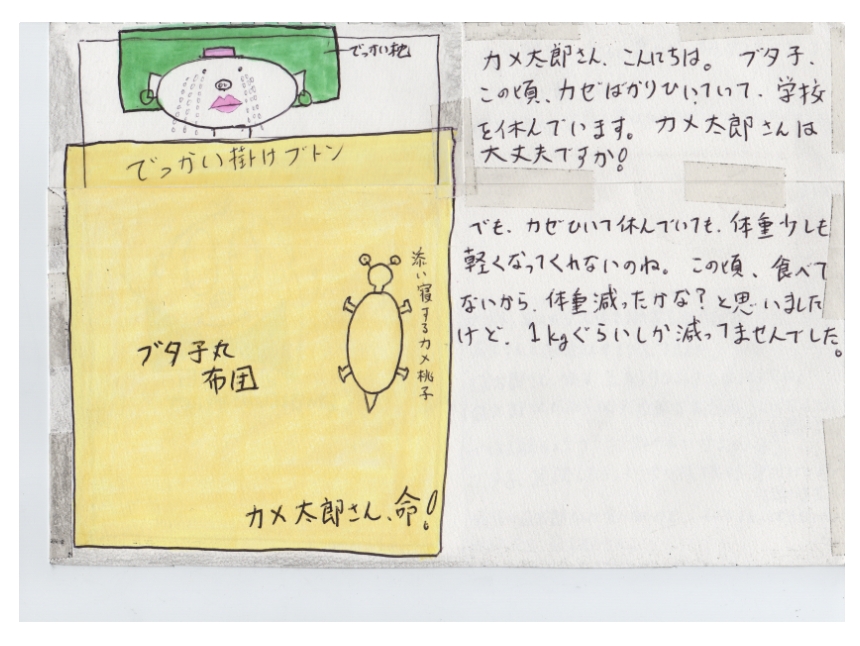 でっかい枕
でっかい掛けブトン
添い寝するカメ桃子
ブタ子丸
布団
カメ太郎さん、命!
カメ太郎さん、こんにちは。 ブタ子、
この頃、カゼばかりひいていて、学校
を休んでいます。カメ太郎さんは
大丈夫ですか!
でも、カゼひいて休んでいても、体重少しも
軽くなってくれないのね。この頃、食べて
ないから、体重減ったかな?と思いました
けど、1kgぐらいしか減ってませんでした。